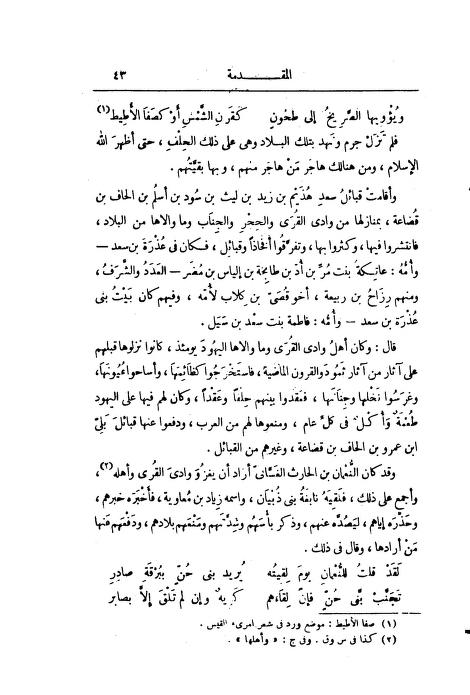 المقدمة ٤٣
ويُؤْويها الصَّرِيخُ إلى طَحُونٍ كقَرنِ الشَّمْسِ أو كصَفَا الأَطِيط(١)
فلم تَزَلْ جرم ونَهد بتلك البلاد وهى على ذلك الحِلْف، حتى أظهرَ الله
الإسلام، ومن هنالك هاجَرَ مَنْ هاجَرَ منهم، وبها بقيَّتُهم.
وأقامتْ قبائلُ سعدِ هُذَيم بن زيد بن ليث بن سُود بن أسلُم بن الحاف بن
قضاعة، بمنازلها من وادى القُرَى والحِجْرِ والجِنَاب وما والاها من البلاد،
فانتشروا فيها، وكثروا بها، وتفرَّقُوا أفخاذًا وقبائل، فكان فى عُذْرَةَ بن سعد —
وأمُّه: عاتكةُ بنت مُرّ بن أدّ بن طابخة بن إلياس بن مُضَر — العَدَدُ والشَّرَفُ،
ومنهم رِزَاح بن ربيعة، أخو قُصَىّ بن كِلاب لأمّه، وفيهم كان بَيْتُ بنى
عُذْرَة بن سعد — وأمُّه: فاطمة بنت سعد بن سَيَل.
قال: وكان أهلُ وادى القُرَى وما والاها اليهودَ يومئذ، كانوا نزلوها قبلهم
على آثارٍ من آثار ثَمُودَ والقرون الماضية، فاستخْرَجوا كَظَائمَها، وأساحوا عُيُونَها،
وغرَسُوا نَخْلَها وجِنَانَها، فعَقَدوا بينهم حِلفًا وعَقْدًا، وكان لهم فيها على اليهود
طُعْمَة وأُكُل فى كلّ عام، ومنعوها لهم من العرب، ودفعوا عنها قبائلَ بَلِىّ
ابن عمرو بن الحاف بن قضاعة، وغيرهم من القبائل.
وقد كان النُّعْمان بن الحارث الغسَّانىّ أراد أن يغزُوَ وادىَ القُرى وأهله(٢)،
وأجمع على ذلك، فلَقِيَه نابغةُ بنى ذُبْيَان، واسمه زياد بن مُعاوية، فأخبَرَه خبرهم،
وحَذَّره إياهم، ليَصُدَّه عنهم، وذكر بأسَهم وشِدَّتَهم ومَنْعَهم بلادهم، ودَفْعَهم عنها
مَنْ أرادها، وقال فى ذلك.
لَقَدْ قلتُ للنُّعْمَان يومَ لقِيتُه يُريد بنى حُنّ ببُرْقَةِ صادِرِ
تَجَنَّبْ بنى حُنّ فإنّ لِقاءَهم كَرِيهٌ وإن لم تَلْقَ إلَّا بصابر
(١) صفا الأطيط: موضع ورد فى شعر امرىء القيس.
(٢) كذا فى س وق. وفى ج: «وأهلها».